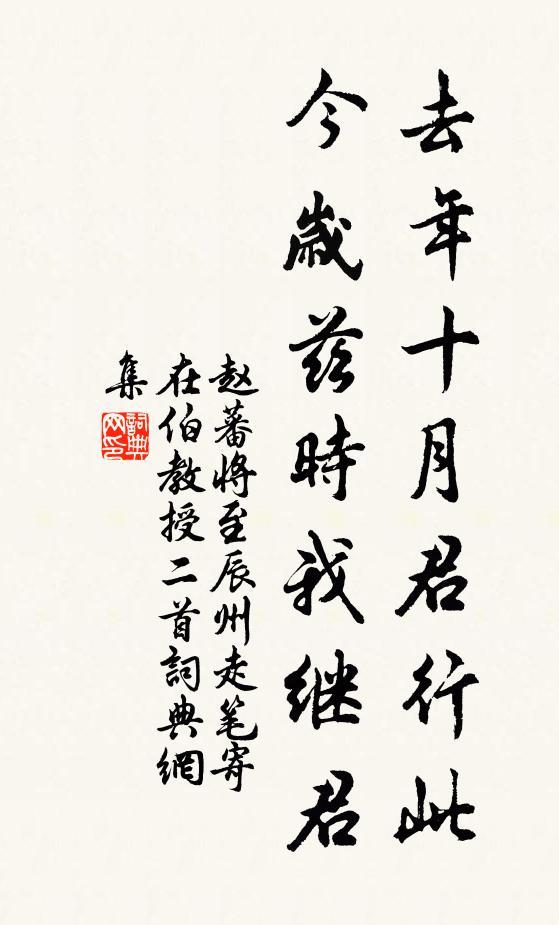 去年十月君行此
今歲茲時我继君
赵蕃將至辰州走笔寄
在伯教授二首詞典網
集
詞典网印